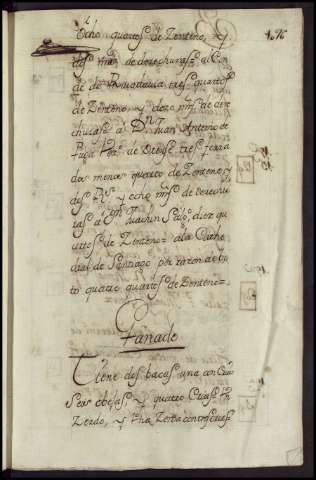 Echo quartos de Zenteno, y
dos mrs de derechuras al Con
de de Rivadavia tres quartos
de Zenteno, y doze mrs de dere
churas a Dn Juan Antonio de
Puga Dor de Orbise tres ferra
dos menos quarto de Zenteno, y
dos Rs y echo mrs de derechu
ras a Dn Joachin diez qu
artos de Zenteno = a la Cathe
dral de Santiago por razon de bo
to quatro quartos de Zenteno =
Ganado
Tiene dos bacas una con Cria
Seis obejas y quatro Crias Un
Zerdo, y Una Zerda con tres Crias